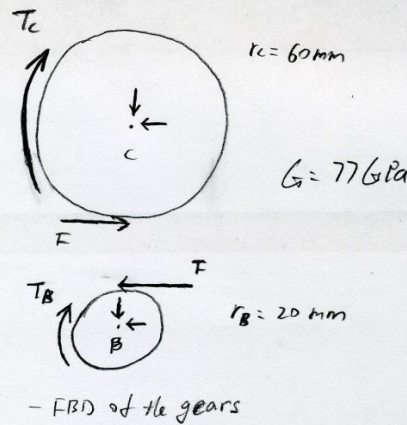 Tc
rc = 60 mm
C
G = 77 GPa
F
F
TB
B
rB = 20 mm
- FBD of the gears